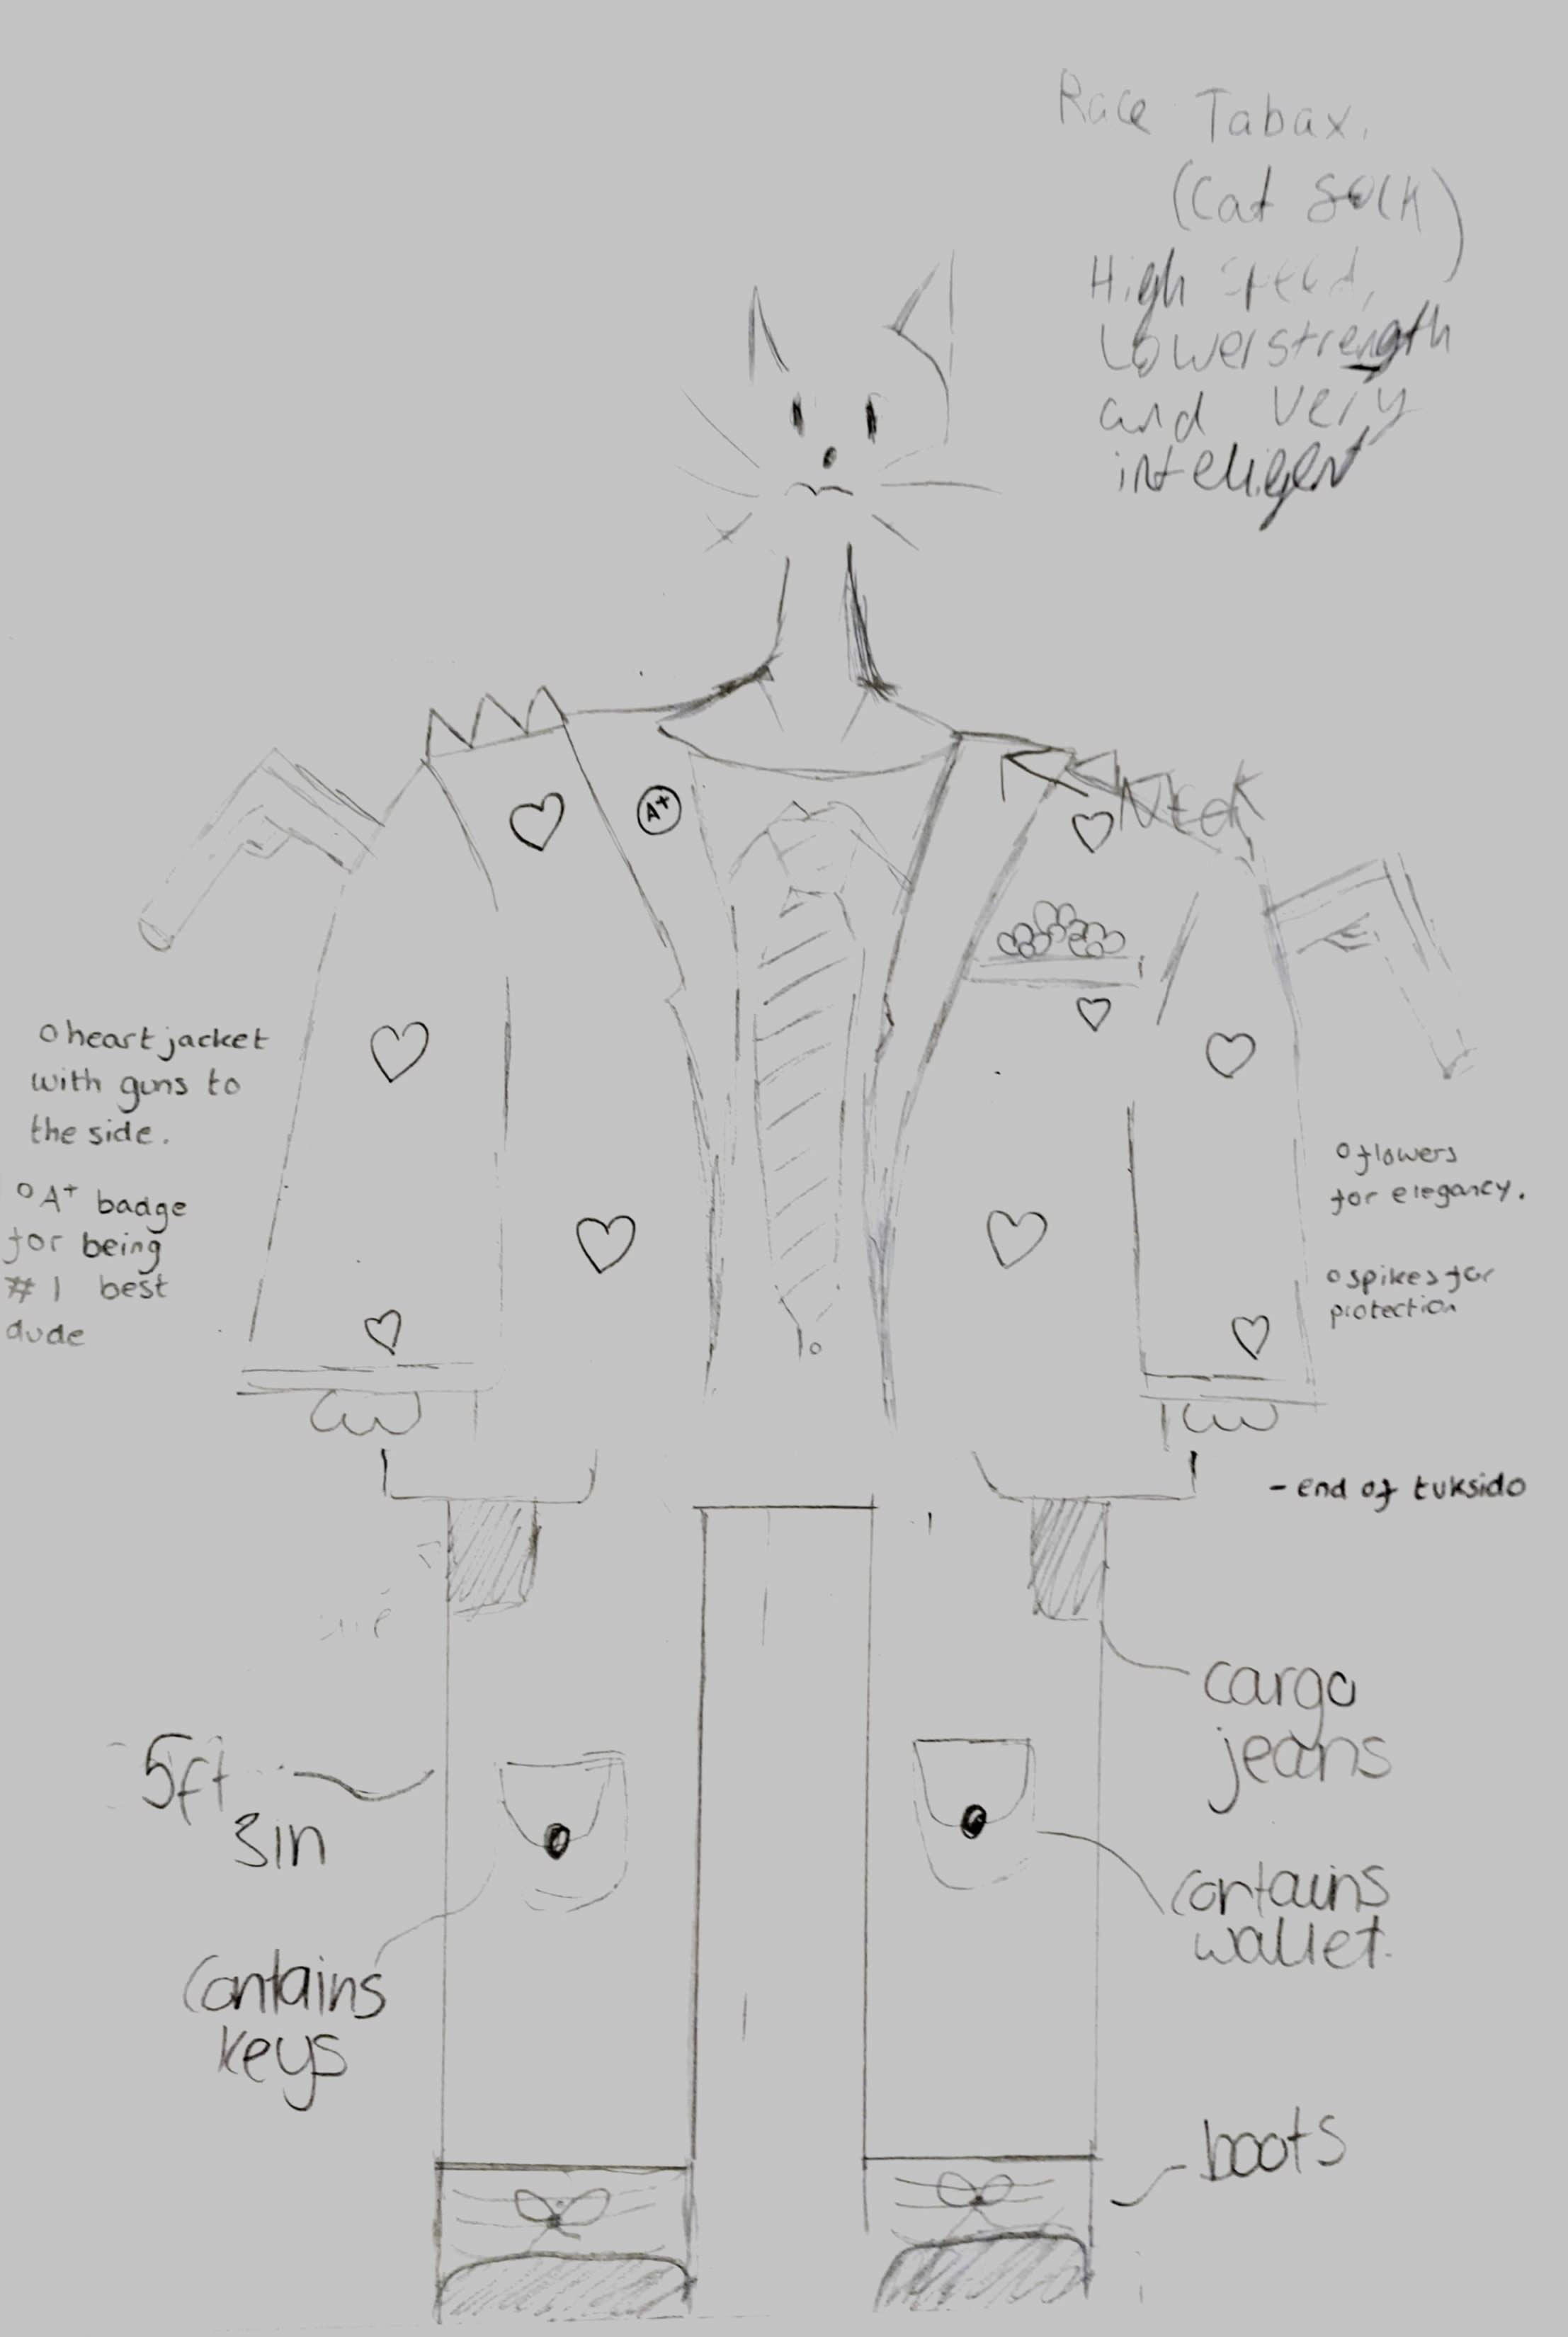 Race Tabax.
(Cat
High speed,
Lower strength
and very
inteligent
A+
o heart jacket
with guns to
the side.
o A+ badge
for being
#1 best
dude
o flowers
for elegancy.
o spikes for
protection
- end of tuksido
cargo
jeans
5ft
3in
contains
wallet.
Contains
keys
boots